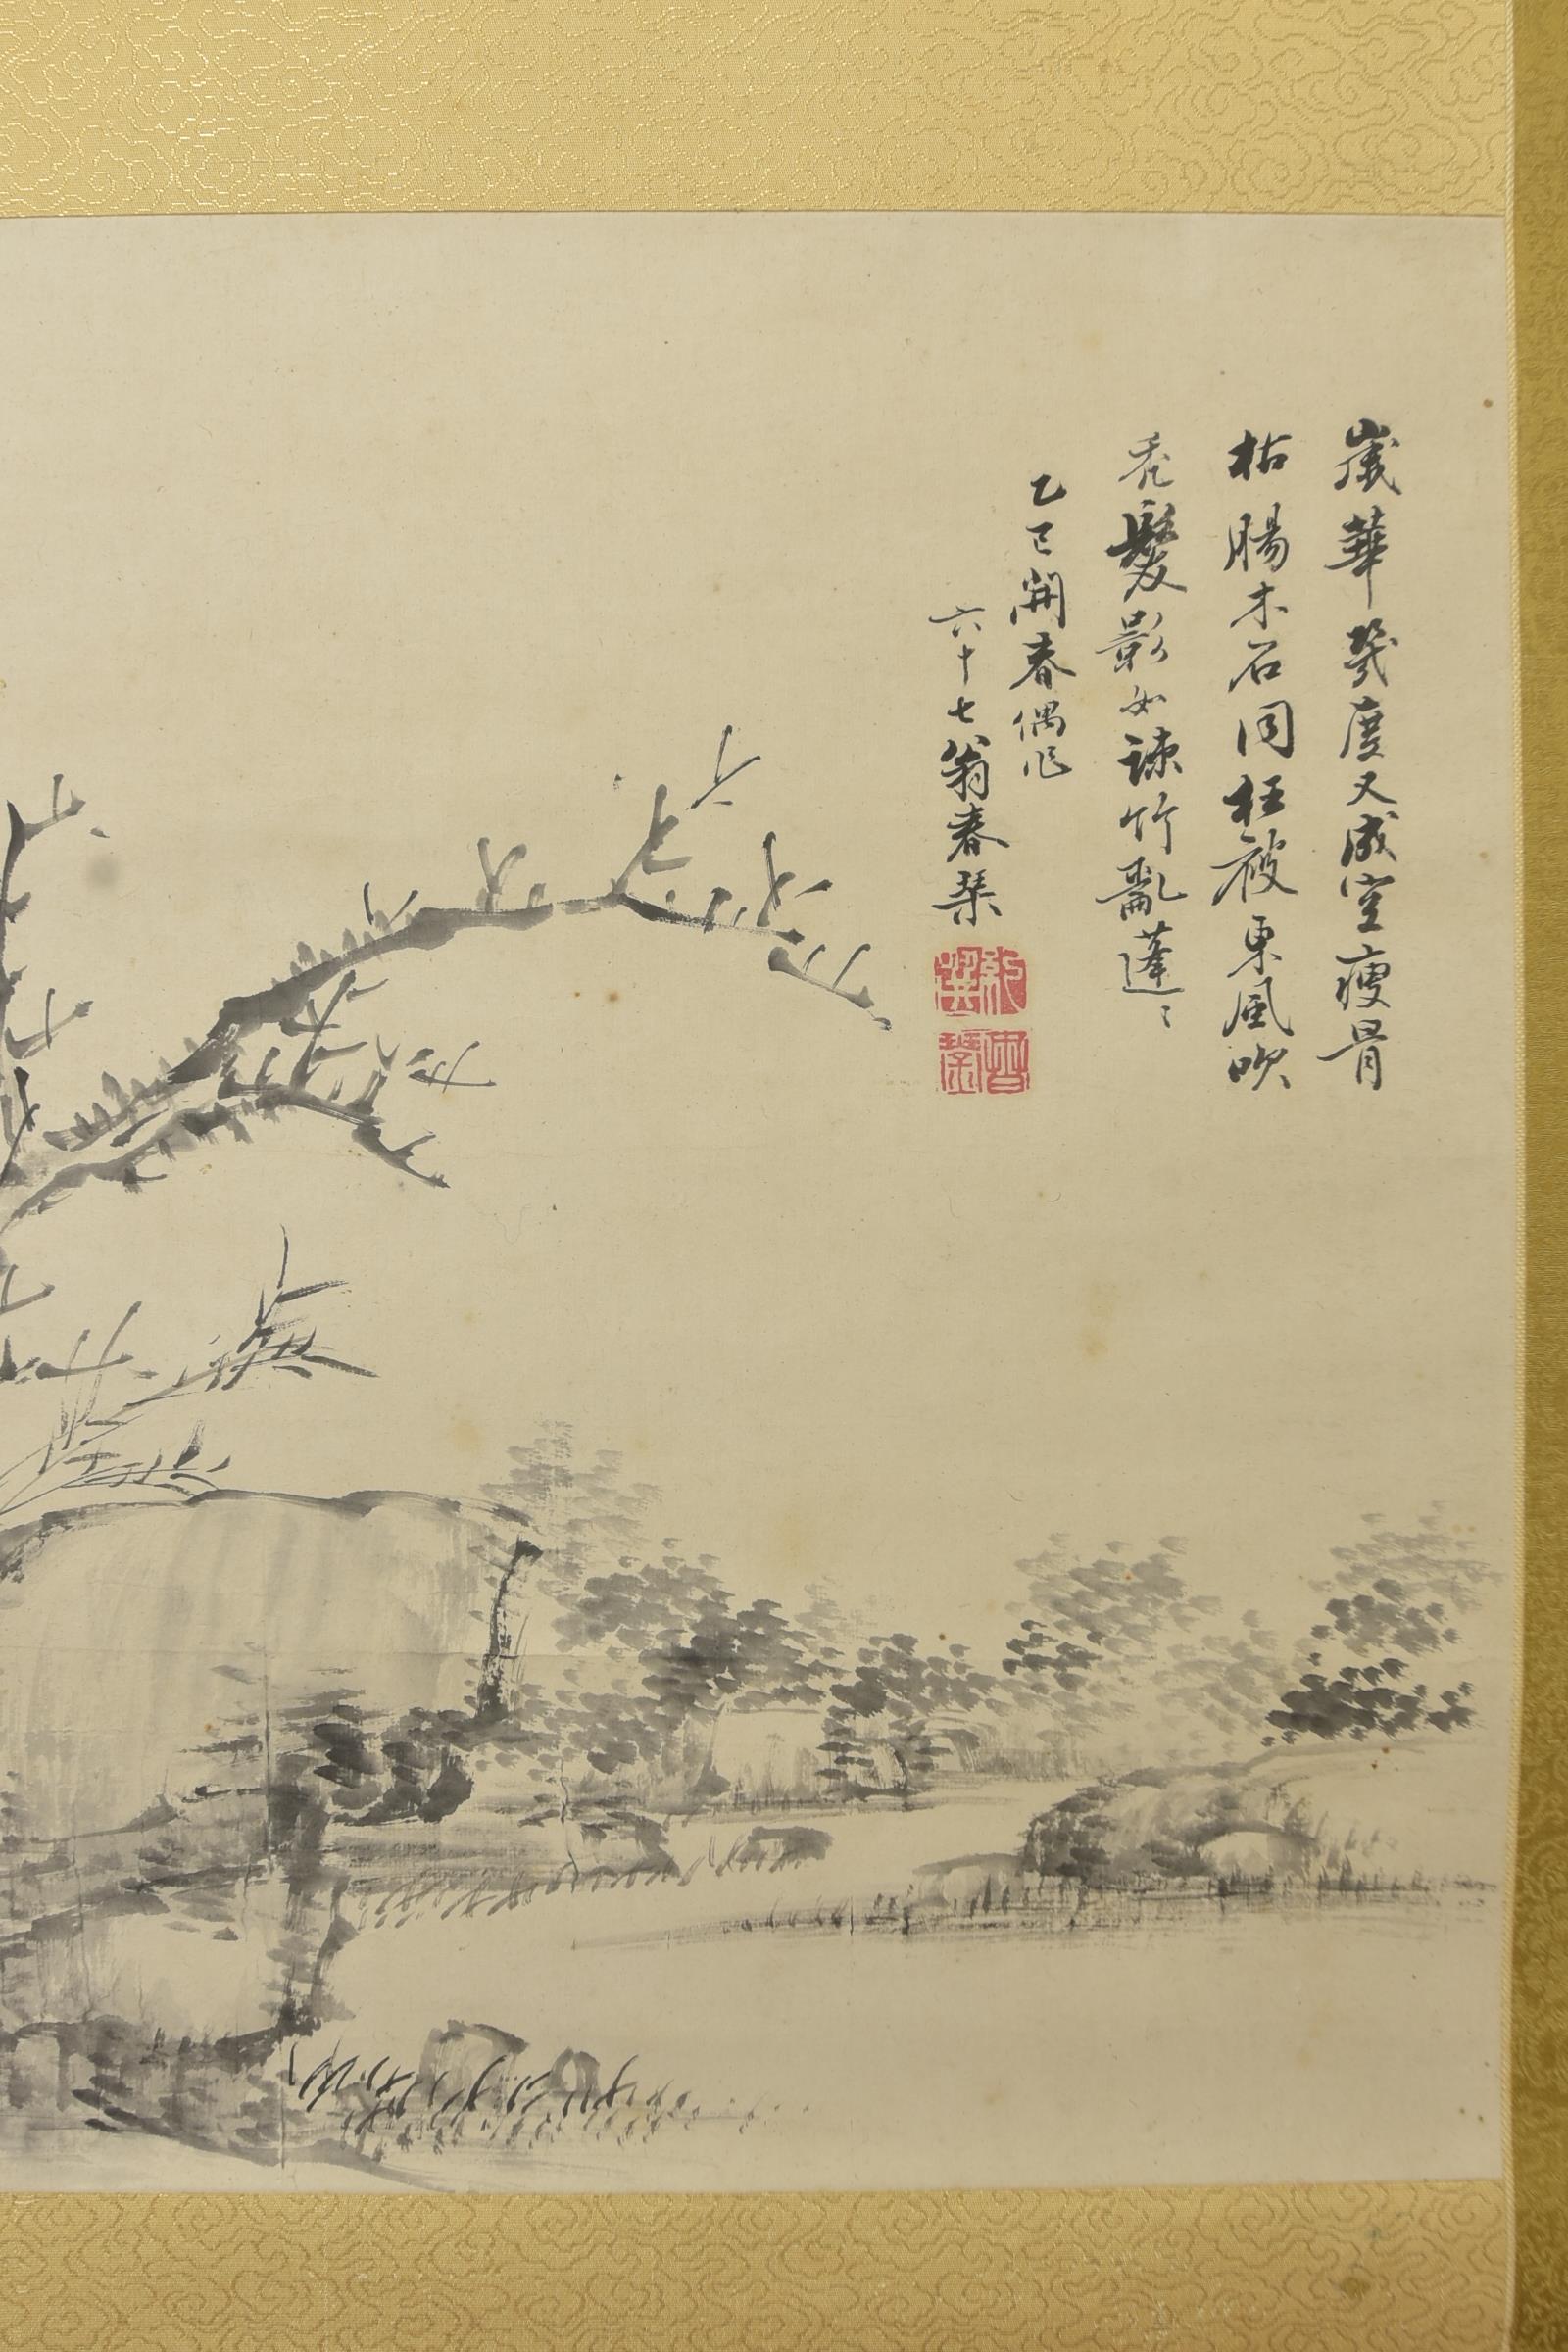 歳華幾度又成空瘦骨
枯腸木石同枉被東風吹
禿髮影如疎竹亂蓬々
乙巳開春偶作
六十七翁春琴
紀
選印